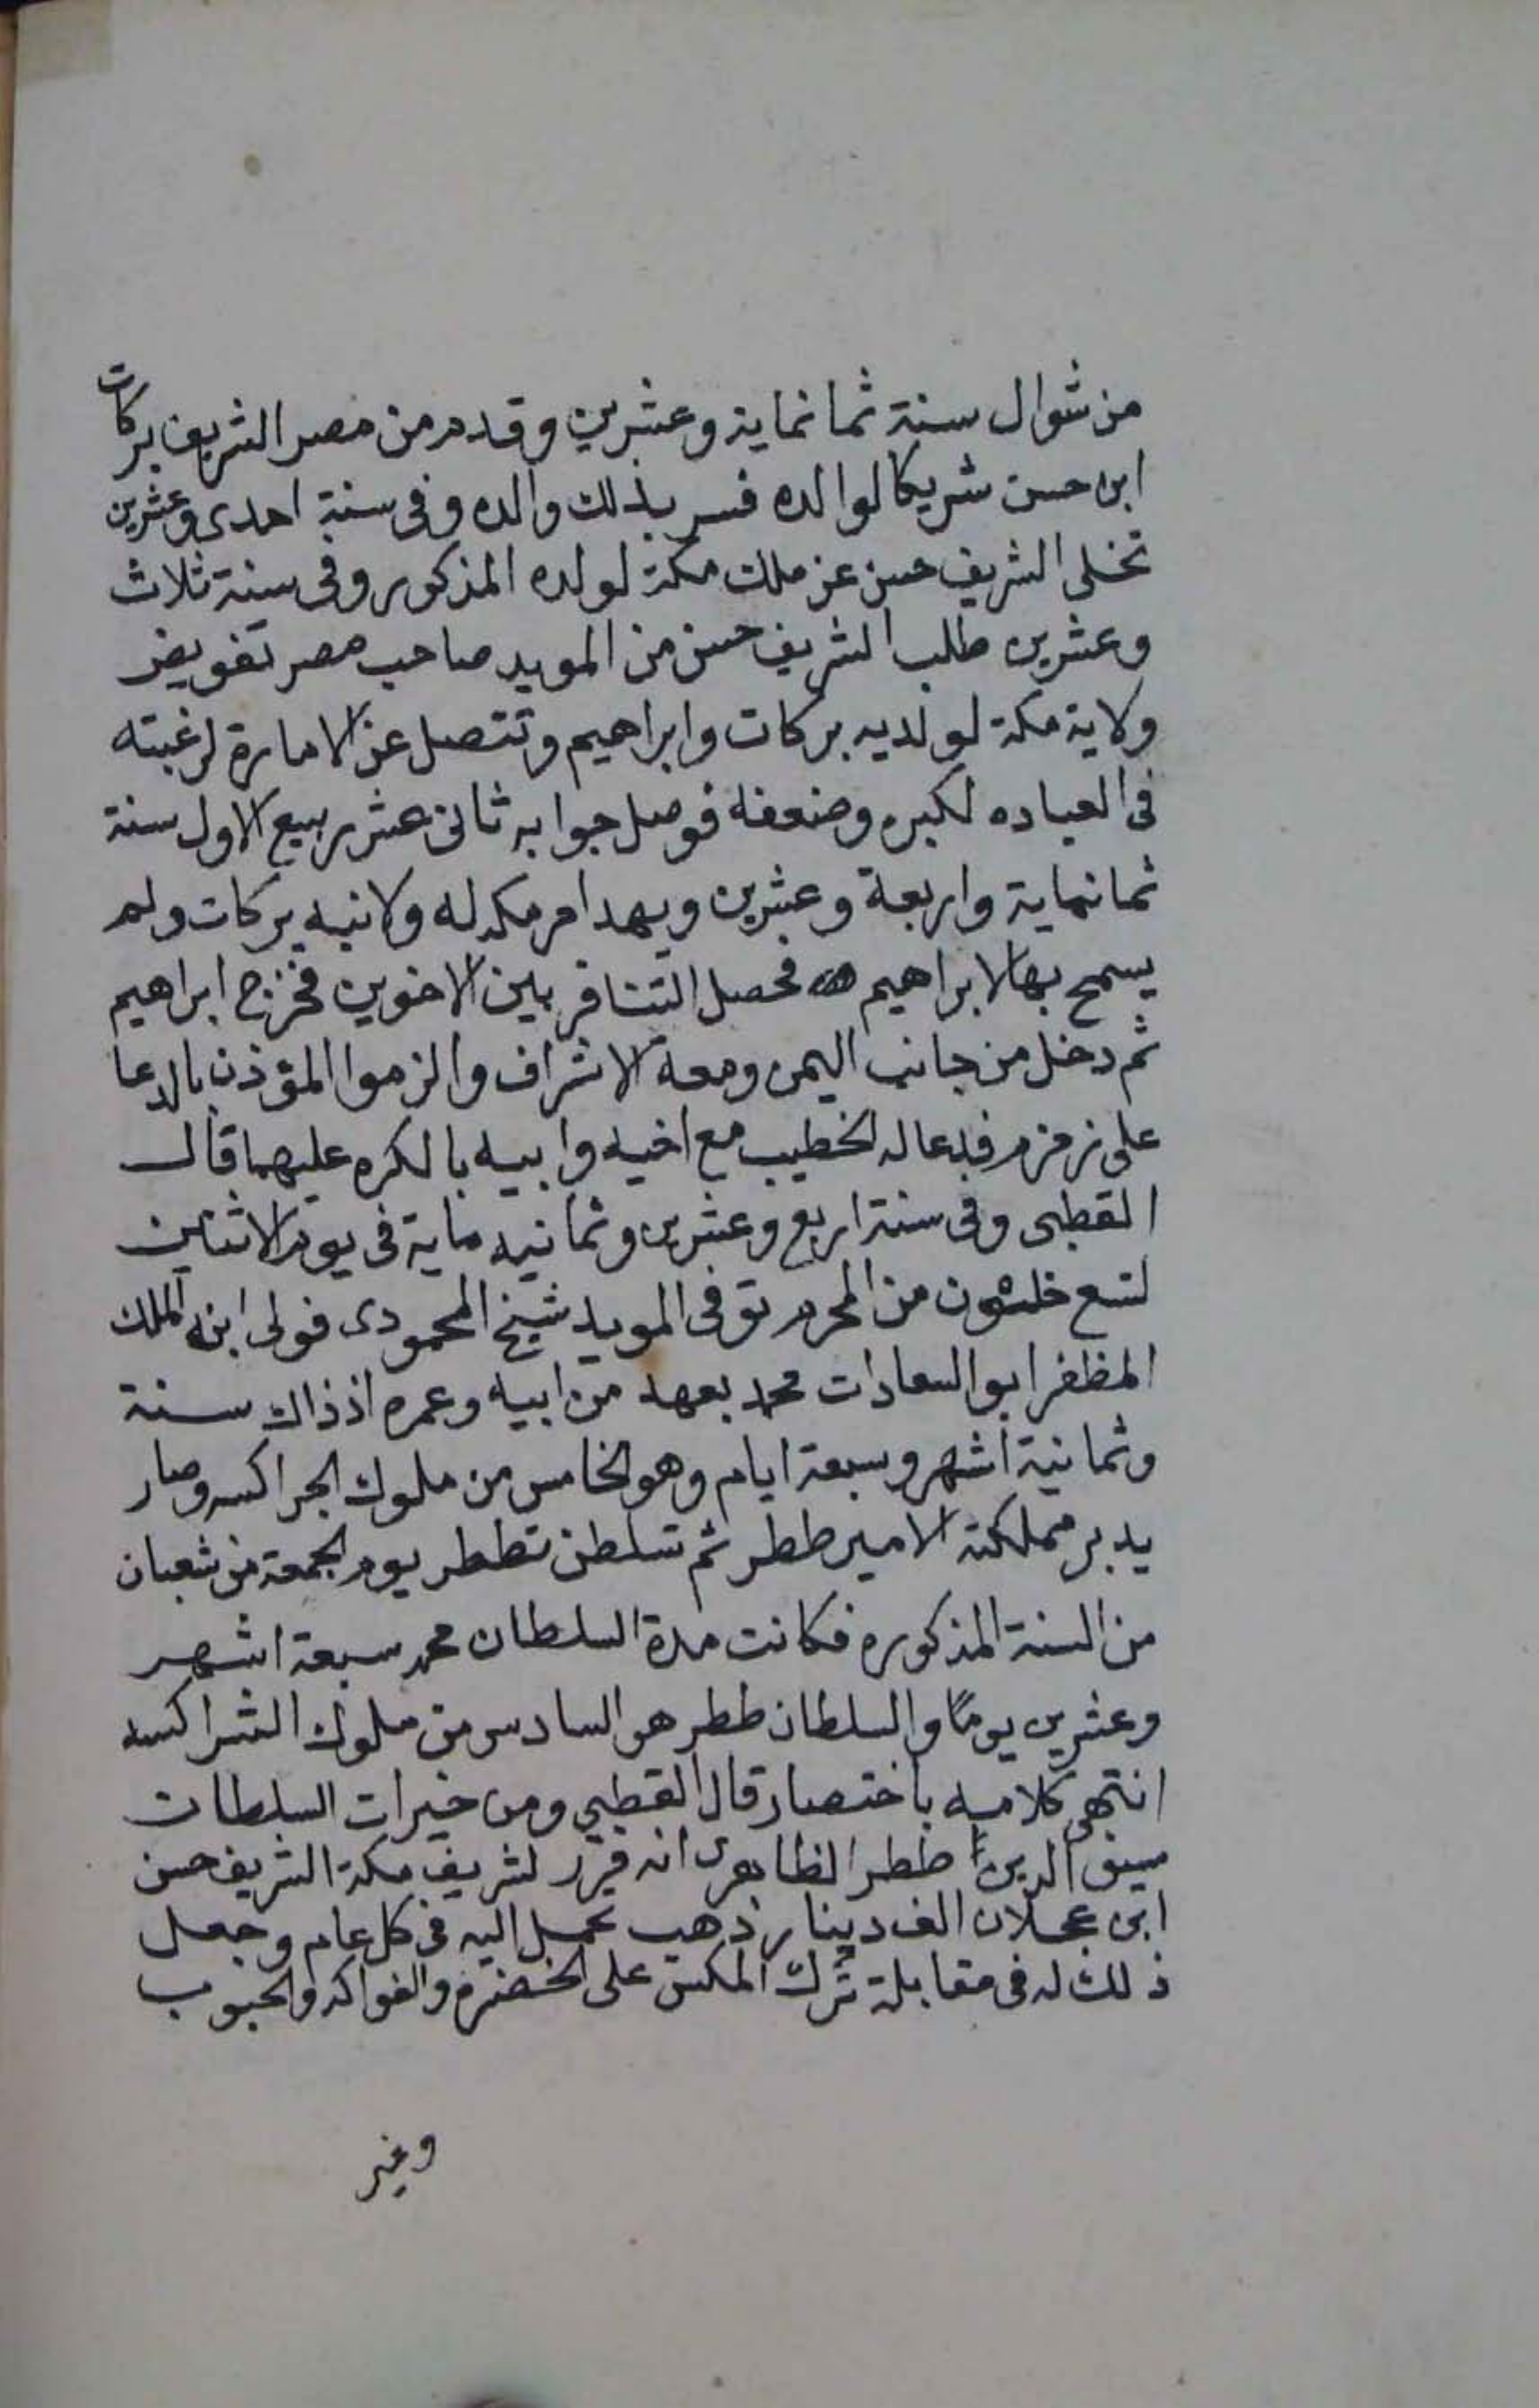 من شوال سنة ثمانماية وعشرين وقدم من مصر الشريف بركات
ابن حسن شريكا لوالده فسر بذلك والده وفى سنة احدى وعشرين
تخلى الشريف حسن عن ملك مكة لولده المذكور وفى سنة ثلاث
وعشرين طلب الشريف حسن من المويد صاحب مصر تفويض
ولاية مكة لولديه بركات وابراهيم وتتصل عن الامارة لرغبته
فى العباده لكبره وضعفه فوصل جوابه ثانى عشر ربيع الاول سنة
ثمانماية واربعة وعشرين وبهد امر مكه له ولابنيه بركات ولم
يسمح بها لابراهيم فحصل التنافر بين الاخوين فخرج ابراهيم
ثم دخل من جانب اليمن ومعه الاشراف والزموا المؤذن بالدعا
على زمزم فدعا له الخطيب مع اخيه وابيه بالكره عليهما قال
القطبى وفى سنة اربع وعشرين وثمانيه ماية فى يوم الاثنين
لتسع خلون من المحرم توفى المويد شيخ المحمودى فولى ابنه الملك
المظفر ابو السعادات محمد بعهد من ابيه وعمره اذ ذاك سنة
وثمانية اشهر وسبعة ايام وهو الخامس من ملوك الجراكسه وصار
يدبر مملكته الامير ططر ثم تسلطن تططر يوم الجمعة من شعبان
من السنة المذكوره فكانت مدة السلطان محمد سبعة اشهر
وعشرين يومًا والسلطان ططر هو السادس من ملوك الشراكسه
انتهى كلامه باختصار قال القطبي ومن خيرات السلطان
سيف الدين ططر الظاهرى انه قرّر لشريف مكة الشريف حسن
ابن عجلان الف دينار ذهب تحمل اليه فى كل عام وجعل
ذلك له فى مقابلة ترك المكس على الخضره والفواكه والحبوب
وغير